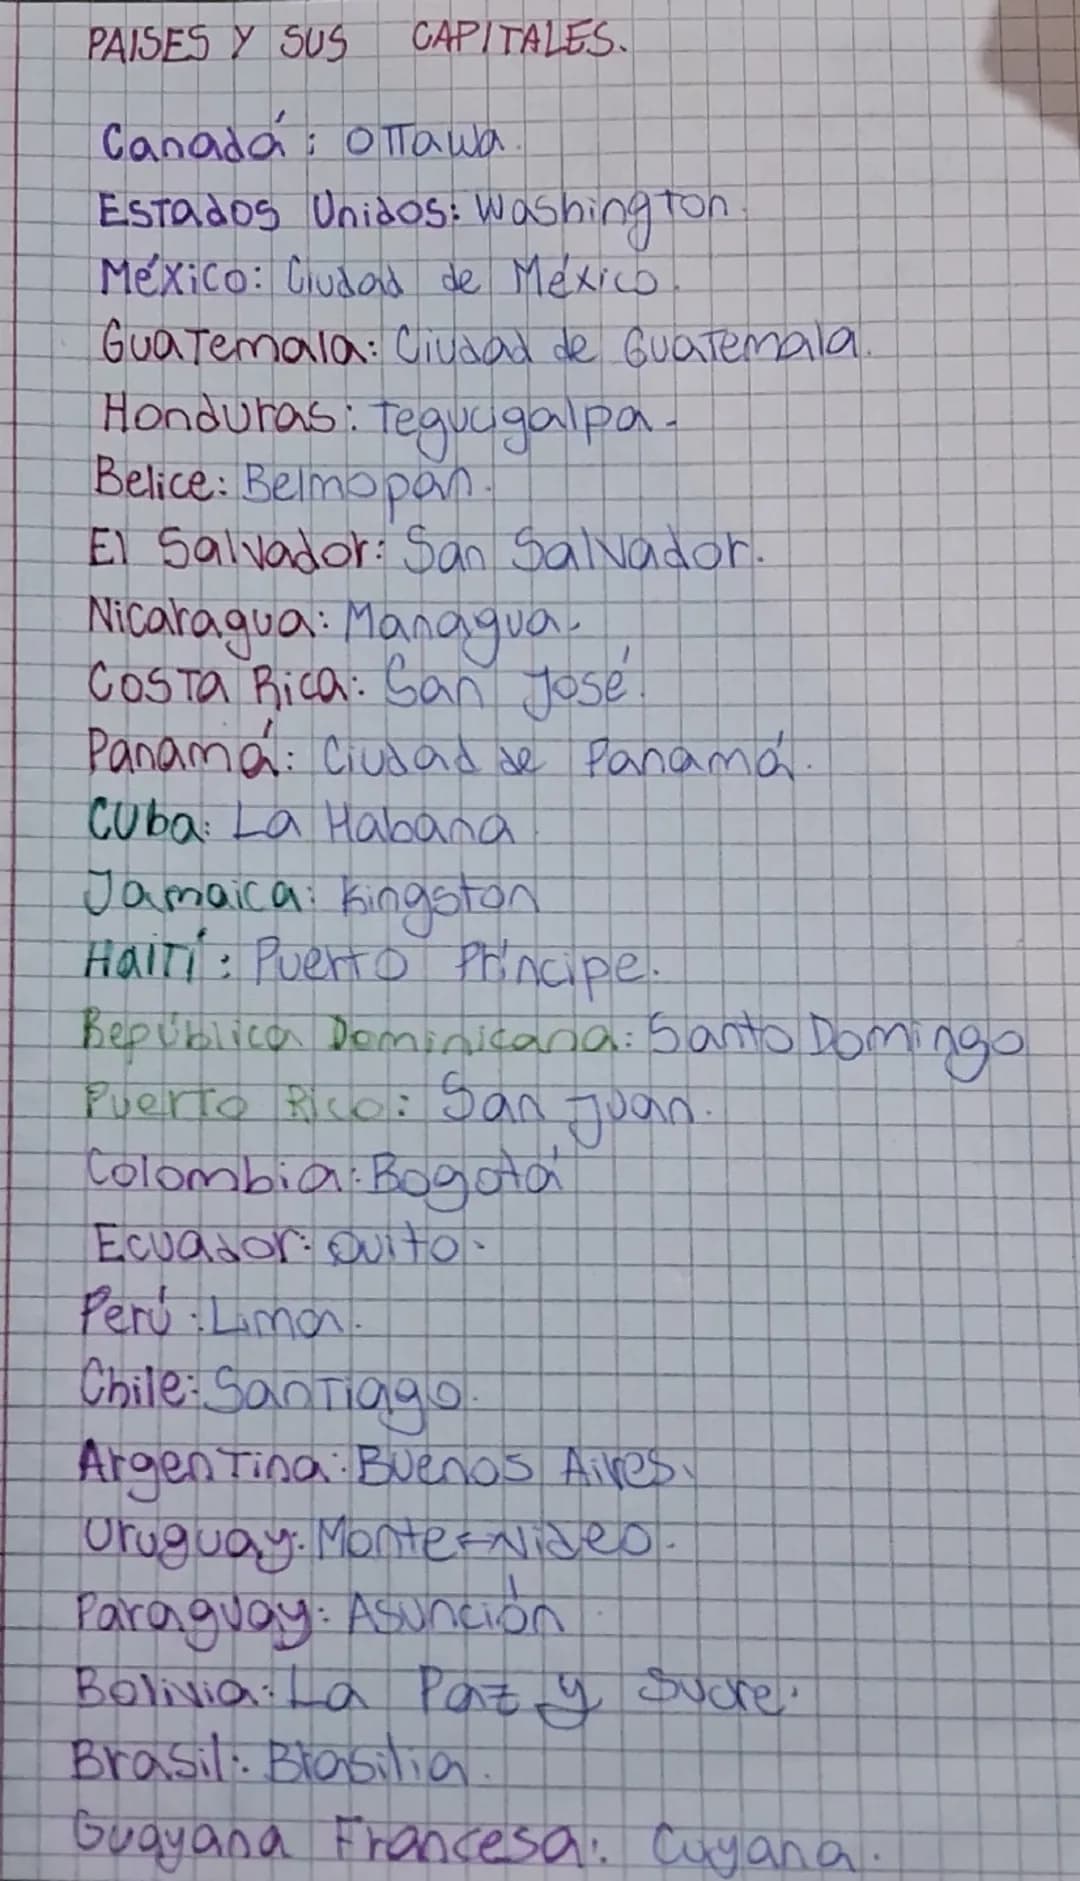 PAISES Y SUS CAPITALES.
Canadá: Ottawa.
Estados Unidos: Washington.
México: Ciudad de México.
Guatemala: Ciudad de Guatemala.
Honduras: Tegucigalpa.
Belice: Belmopan.
El Salvador: San Salvador.
Nicaragua: Managua.
Costa Rica: San José.
Panamá: Ciudad de Panamá.
Cuba: La Habana
Jamaica: Kingston
Haití: Puerto Príncipe.
República Dominicana: Santo Domingo
Puerto Rico: San Juan.
Colombia: Bogotá
Ecuador: Quito.
Perú: Lima.
Chile: Santiago.
Argentina: Buenos Aires.
Uruguay: Monte-Video.
Paraguay: Asunción
Bolivia: La Paz y Sucre.
Brasil: Brasilia.
Guayana Francesa: Cuyana.